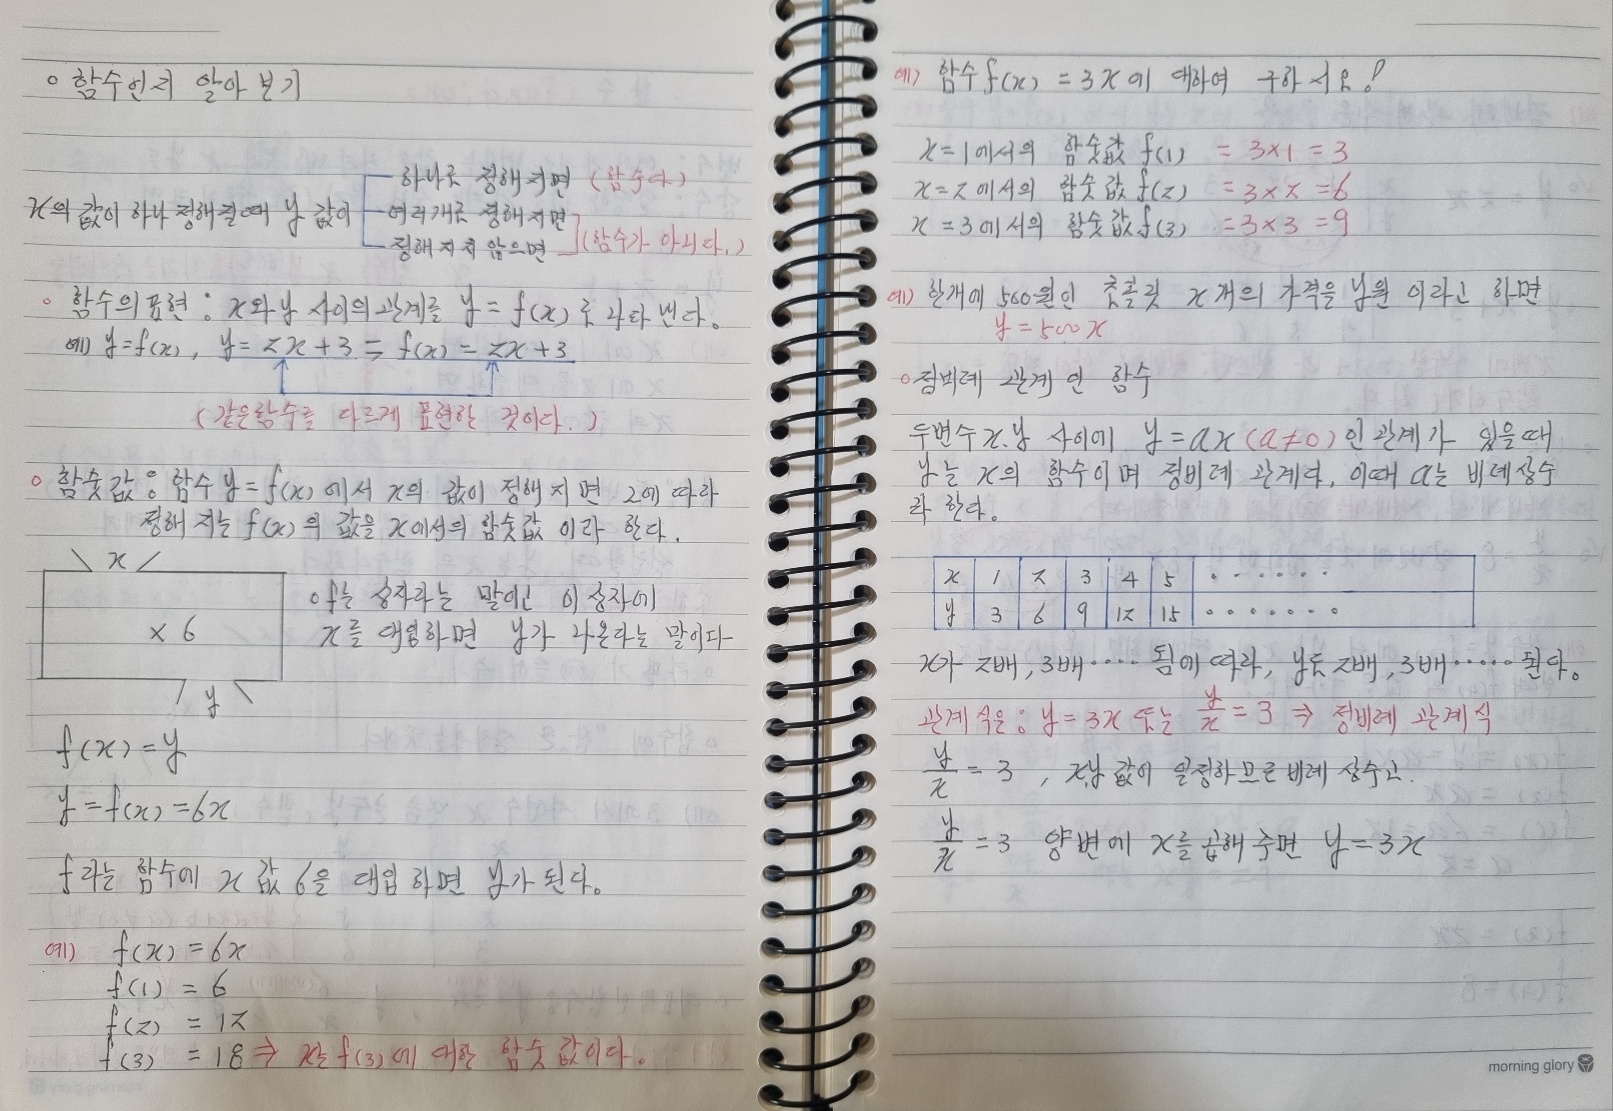 ○ 함수인지 알아 보기
x의 값이 하나 정해질때 y 값이
하나로 정해 지면 (함수다)
여러개로 정해지면
정해지지 않으면 (함수가 아니다.)
○ 함수의 표현 : x와 y 사이의 관계를 y = f(x) 로 나타 낸다.
예) y=f(x), y=2x+3 = f(x) = 2x+3
(같은함수를 다르게 표현한 것이다.)
○ 함숫값 : 함수 y=f(x) 에서 x의 값이 정해 지면 2에 따라
정해 지는 f(x)의 값을 x에서의 함숫값 이라 한다.
x
× 6
y
○ f는 상자라는 말이고 이 상자에
x를 대입하면 y가 나온다는 말이다
f(x) = y
y = f(x) = 6x
f 라는 함수에 x 값 6을 대입 하면 y가 된다.
예) f(x) = 6x
f(1) = 6
f(2) = 12
f(3) = 18 ⇒ x는 f(3)에 대한 함숫 값이다.
예) 함수 f(x) = 3x 에 대하여 구하시오!
x=1에서의 함숫값 f(1) = 3×1 = 3
x=2에서의 함숫값 f(2) = 3×2 = 6
x=3에서의 함숫값 f(3) = 3×3 = 9
예) 한개에 500원인 초콜릿 x개의 가격을 y원 이라고 하면
y = 500x
○ 정비례 관계 인 함수
두변수 x, y 사이에 y = ax (a≠0) 인 관계가 있을때
y는 x의 함수이며 정비례 관계다, 이때 a는 비례상수
라 한다.
x 1 2 3 4 5 ······
y 3 6 9 12 15 ·······
x가 2배, 3배····· 됨에 따라, y도 2배, 3배····· 된다.
관계식은 : y=3x 또는 y/x = 3 ⇒ 정비례 관계식
y/x = 3 , x,y 값이 일정하므로 비례 상수고.
y/x = 3 양변에 x를 곱해 주면 y = 3x
morning glory